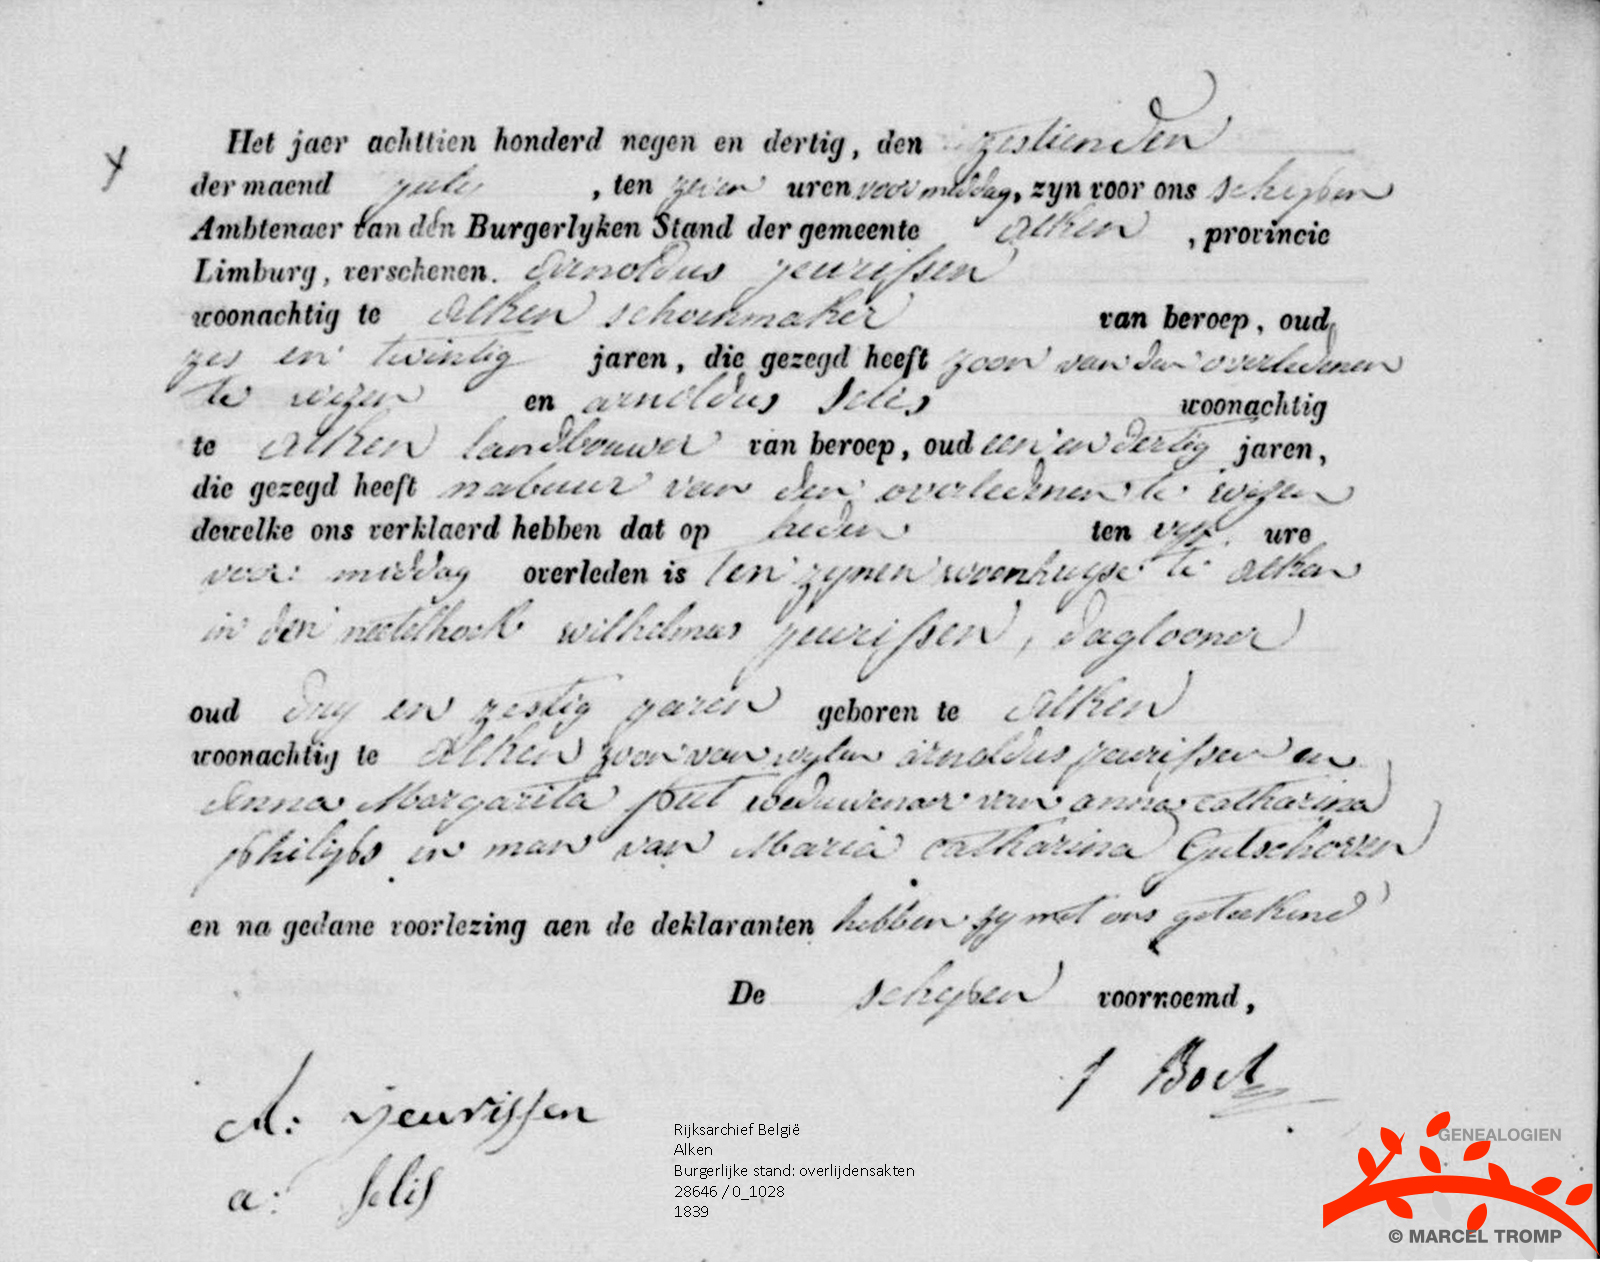 Het jaer achttien honderd negen en dertig, den zestienden
der maend july, ten zeven uren voor middag, zyn voor ons schepen
Ambtenaer van den Burgerlyken Stand der gemeente Alken, provincie
Limburg, verschenen. Arnoldus Jeurissen
woonachtig te Alken schoenmaker van beroep, oud
zes en twintig jaren, die gezegd heeft zoon van den overledenen
te wezen en arnoldus Selis woonachtig
te Alken landbouwer van beroep, oud een en dertig jaren,
die gezegd heeft nabuur van den overledenen te wezen
dewelke ons verklaerd hebben dat op heden ten vyf ure
voor middag overleden is ten zynen woonhuyse te Alken
in den neetelhoek wilhelmus Jeurissen, daglooner
oud dry en zestig jaren geboren te Alken
woonachtig te Alken zoon van wylen arnoldus Jeurissen en
Anna Margarita put weduwenaer van anna catharina
philips en man van Maria catharina Gutschoven
en na gedane voorlezing aen de deklaranten hebben zy met ons geteekend
De schepen voornoemd,
J Boets
A: Jeurissen
a: Selis
Rijksarchief België
Alken
Burgerlijke stand: overlijdensakten
28646 / 0_1028
1839
GENEALOGIEN
© MARCEL TROMP